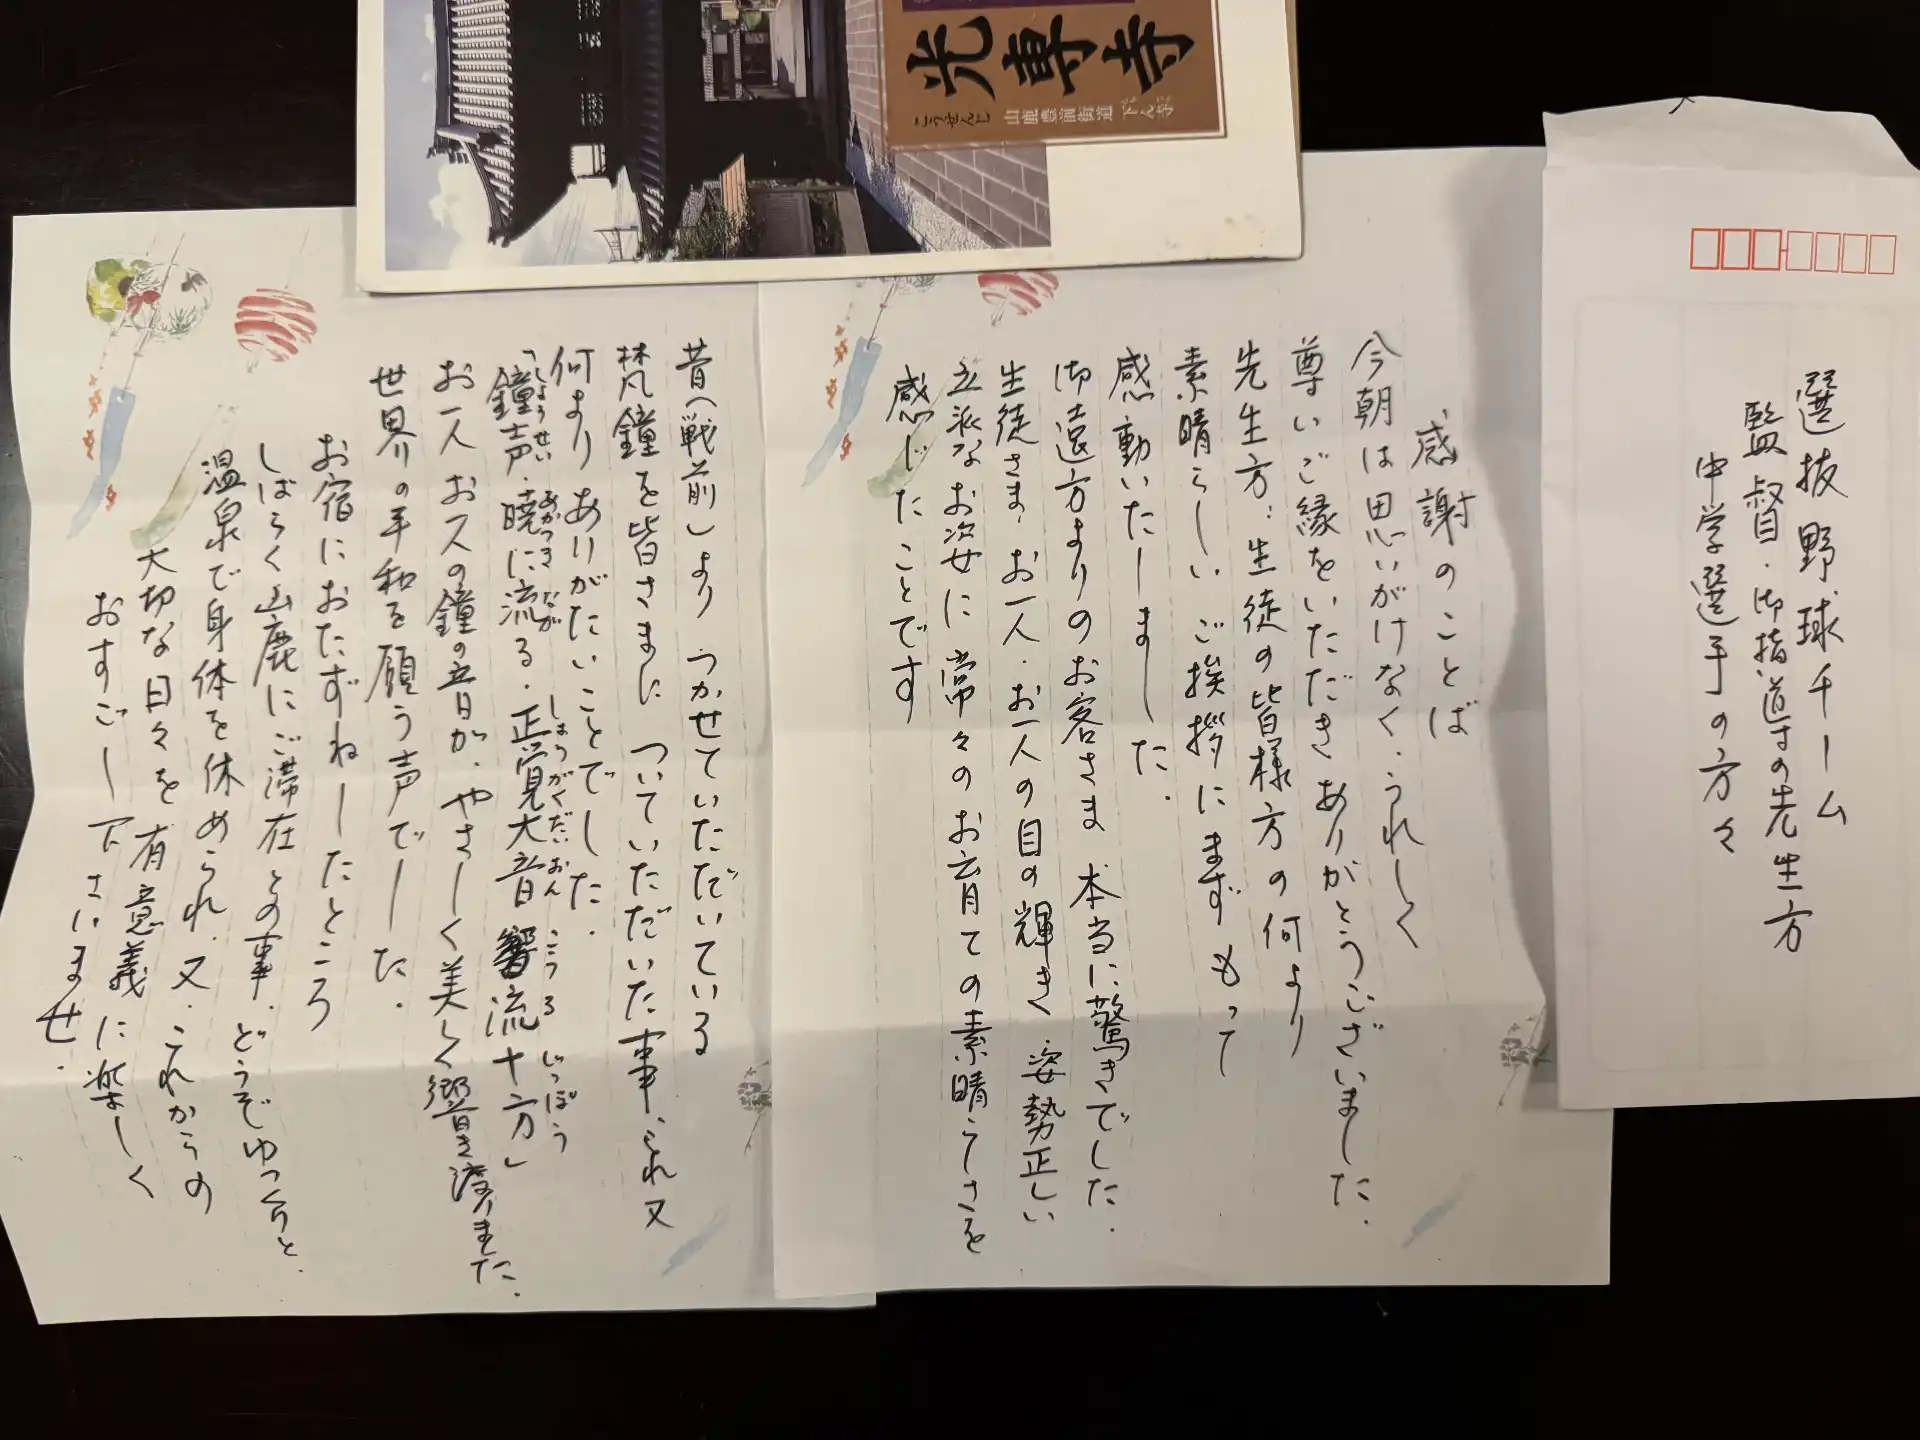 光専寺
こうせんじ
山鹿豊前街道 下ん寺
選抜野球チーム
監督・御指導すの先生方
中学選手の方々
感謝のことば
今朝は思いがけなく、うれしく
尊いご縁をいただきありがとうございました.
先生方、生徒の皆様方の何より
素晴らしいご挨拶にまずもって
感動いたしました.
御遠方よりのお客さま 本当に驚きでした.
生徒さま、お一人・お一人の目の輝き、姿勢正しい
立派なお姿に常々のお育ての素晴らしさを
感じたことです
昔(戦前)より つかせていただいている
梵鐘を皆さまに ついていただいた事、られ又
何より ありがたいことでした.
「鐘声・暁に流る・正覚大音 響流十方」
しょうせい あかつき ながる しょうがくだいおん こうる じっぽう
お一人お一人の鐘の音が、やさしく美しく響き渡りました.
世界の平和を願う声でした.
お宿におたずねしたところ
しばらく山鹿にご滞在との事、どうぞゆっくりと、
温泉で身体を休められ、又、これからの
大切な日々を有意義に楽しく
おすごし下さいませ.